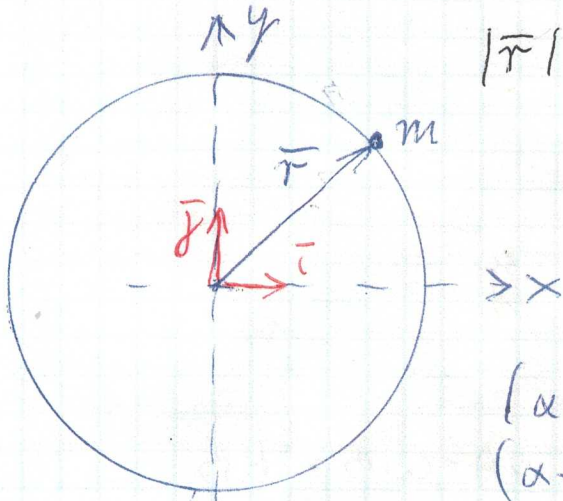 y
|r̅|
m
r̅
j̅
i̅
x
(α
(α-